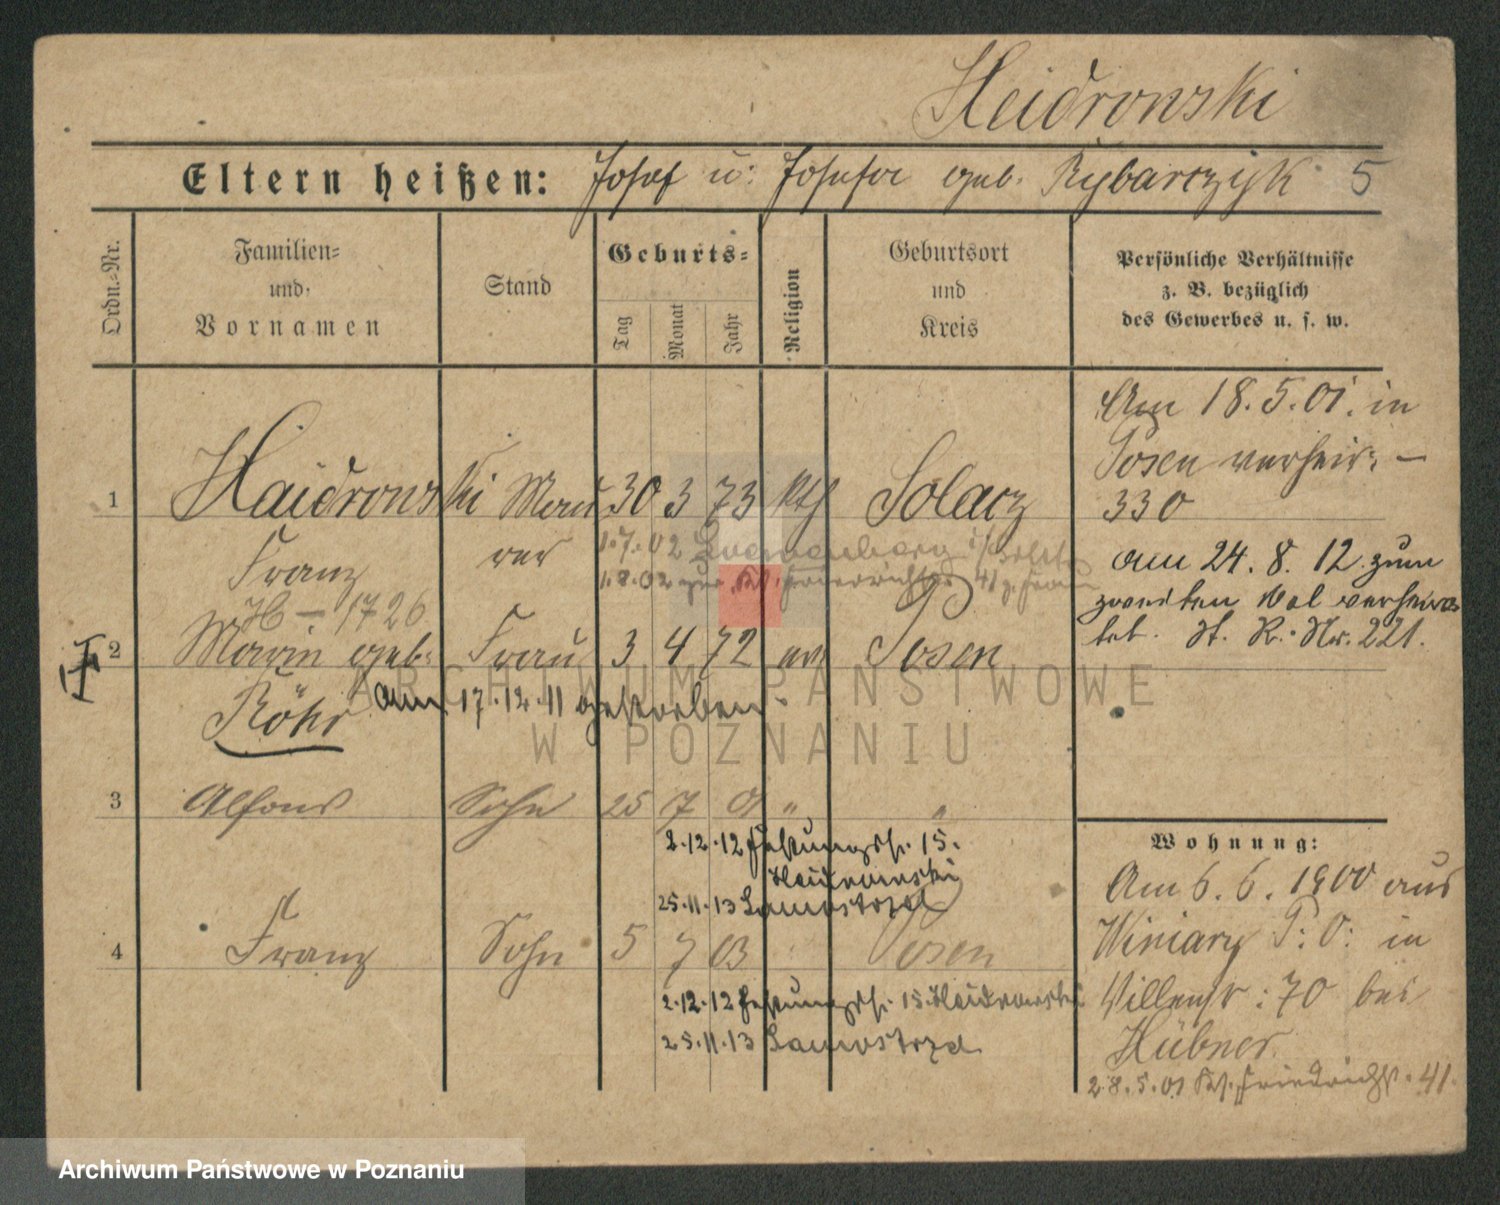 Heidrowski
Eltern heißen: Josef u: Josefa geb. Rybarczyk 5
Ordn.=Nr.
Familien=
und
Vornamen
Stand
Geburts=
Tag
Monat
Jahr
Religion
Geburtsort
und
Kreis
Persönliche Verhältnisse
z. B. bezüglich
des Gewerbes u. s. w.
Am 18.5.01. in
Posen verheir: —
330
1 Haidrowski Mau 30 3 73 kth Solacz
Franz rer 1.7.02
1.8.02 zur
am 24. 8. 12. zum
zweiten Mal verheira
tet. St. R. Nr. 221.
H — 1726
2 Marie geb. Frau 3 4 72 ev Posen
Röhr am 17.12.11 gestorben.
ARCHIWUM PAŃSTWOWE
W POZNANIU
3 Alfons Sohn 25 7 01 " "
2.12.12 Festungsstr. 15.
Heidrowski
25.11.13 Lawostrzel
4 Franz Sohn 5 7 03 Posen
2.12.12 Festungsstr. 15. Heidrowski
25.11.13
Wohnung:
Am 6. 6. 1900 aus
Winiary P: O: in
Villenstr: 70 bei
Hübner.
28.5.01 Kl. Friedrichstr. 41.
Archiwum Państwowe w Poznaniu